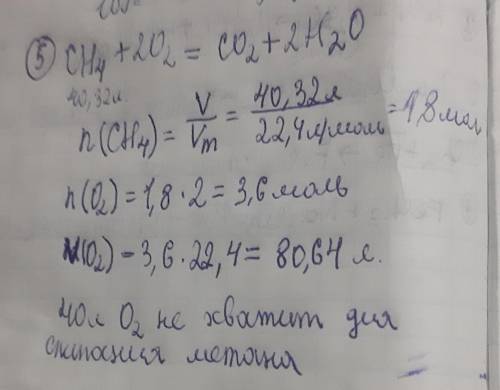 ⑤ CH4 + 2O2 = CO2 + 2H2O
40,32л.
n(CH4) = V/Vm = 40,32л/22,4л/моль = 1,8 мол
n(O2) = 1,8 · 2 = 3,6 моль
V(O2) = 3,6 · 22,4 = 80,64 л.
40л O2 не хватит для
метана